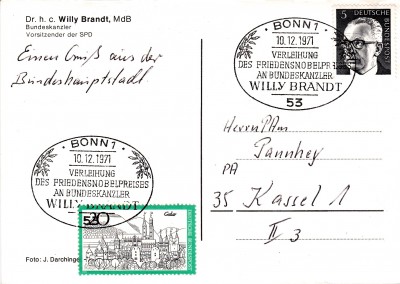 Dr. h. c. Willy Brandt, MdB
Bundeskanzler
Vorsitzender der SPD
Einen Gruß aus der
Bundeshauptstadt
BONN 1
10.12.1971
VERLEIHUNG
DES FRIEDENSNOBELPREISES
AN BUNDESKANZLER
WILLY BRANDT
53
20
Goslar
DEUTSCHE BUNDESPOST
Foto: J. Darchinge
BONN 1
10.12.1971
VERLEIHUNG
DES FRIEDENSNOBELPRE
AN BUNDESKANZLER
WILLY BRANDT
53
5
DEUTSCHE
BUNDESPOST
Herrn
Pannhey
PA
35 Kassel 1
II 3